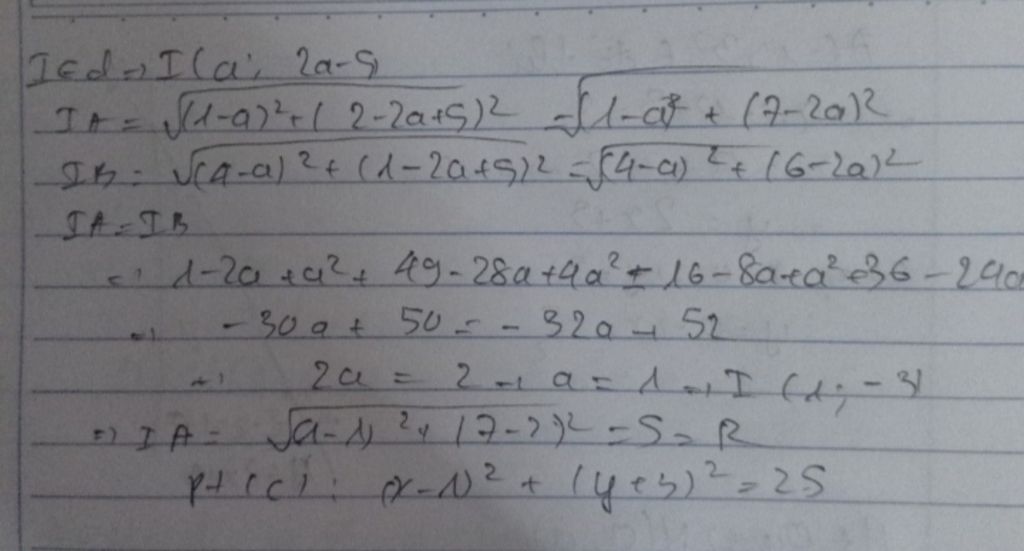 I∈d ⇒ I(a; 2a-5)
IA = √(1-a)²+(2-2a+5)² = √(1-a)² + (7-2a)²
IB = √(4-a)²+(1-2a+5)² = √(4-a)²+(6-2a)²
IA = IB
⇔ 1-2a+a²+49-28a+4a² = 16-8a+a²+36-24a
⇔ -30a + 50 = -32a + 52
⇔ 2a = 2 → a = 1 → I (1; -3)
⇒ IA = √(1-1)²+(7-2)² = 5 = R
pt (c): (x-1)² + (y+3)² = 25